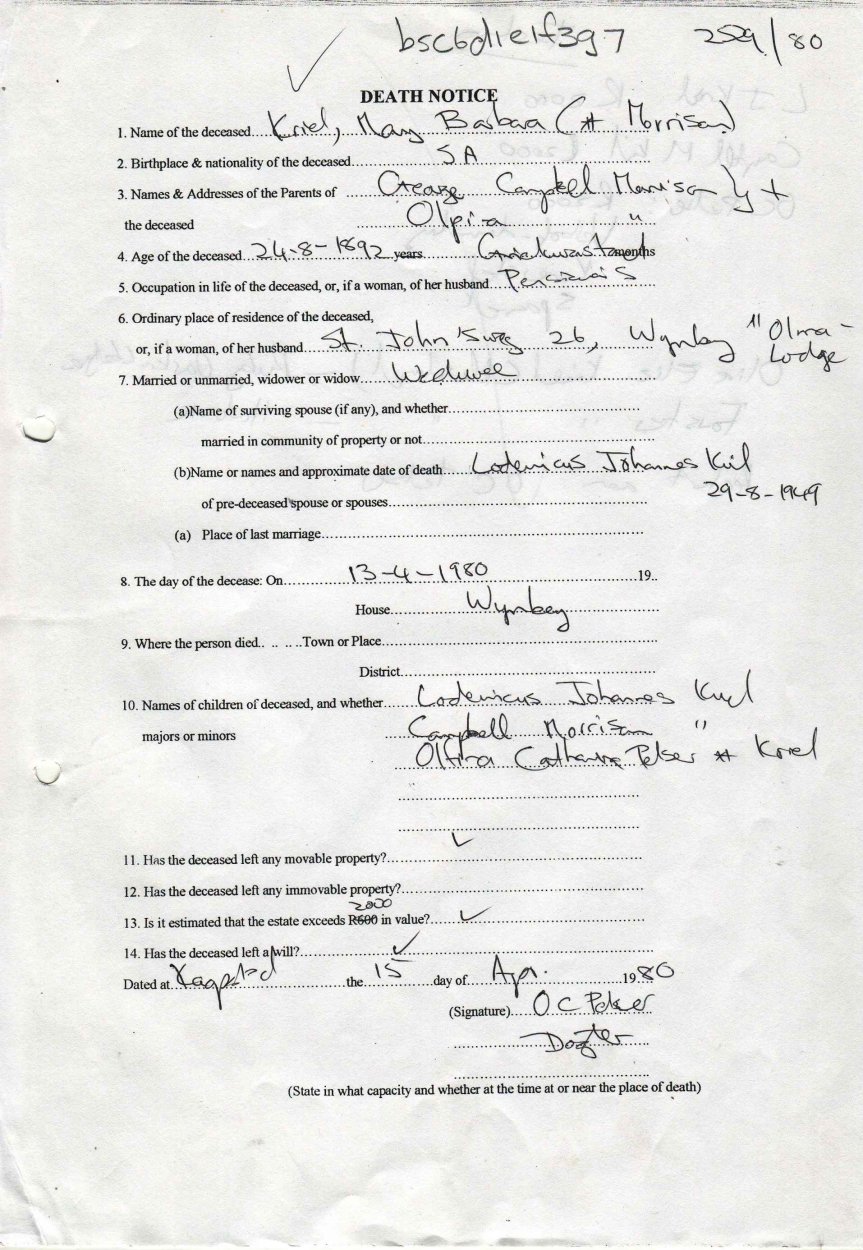 bsc6d1e1f3g7 2529/80
DEATH NOTICE
1. Name of the deceased....Kriel, Mary Barbara (* Morrison)
2. Birthplace & nationality of the deceased........SA
3. Names & Addresses of the Parents of George Campbell Morrison } +
the deceased Olpira "
4. Age of the deceased 24-8-1892 years Griekwastad months
5. Occupation in life of the deceased, or, if a woman, of her husband...
6. Ordinary place of residence of the deceased,
or, if a woman, of her husband....St. John'sweg 26, Wynberg "Olma-
Lodge
7. Married or unmarried, widower or widow....Weduwee
(a)Name of surviving spouse (if any), and whether........
married in community of property or not........
(b)Name or names and approximate date of death Lodewicus Johannes Kriel
of pre-deceased spouse or spouses........ 29-8-1949
(a) Place of last marriage........
8. The day of the decease: On........13-4-1980........19..
House........Wynberg
9. Where the person died.. .. ....Town or Place........
District........
10. Names of children of deceased, and whether Lodewicus Johannes Kriel
majors or minors Campbell Morrison "
Olfira Catharina Pelser * Kriel
11. Has the deceased left any movable property?....✓
12. Has the deceased left any immovable property?........
2000
13. Is it estimated that the estate exceeds R600 in value?....✓
14. Has the deceased left a will?....✓
Dated at Kaapstad the 15 day of Apr. 1980
(Signature)....O C Pelser
Dogter
(State in what capacity and whether at the time at or near the place of death)